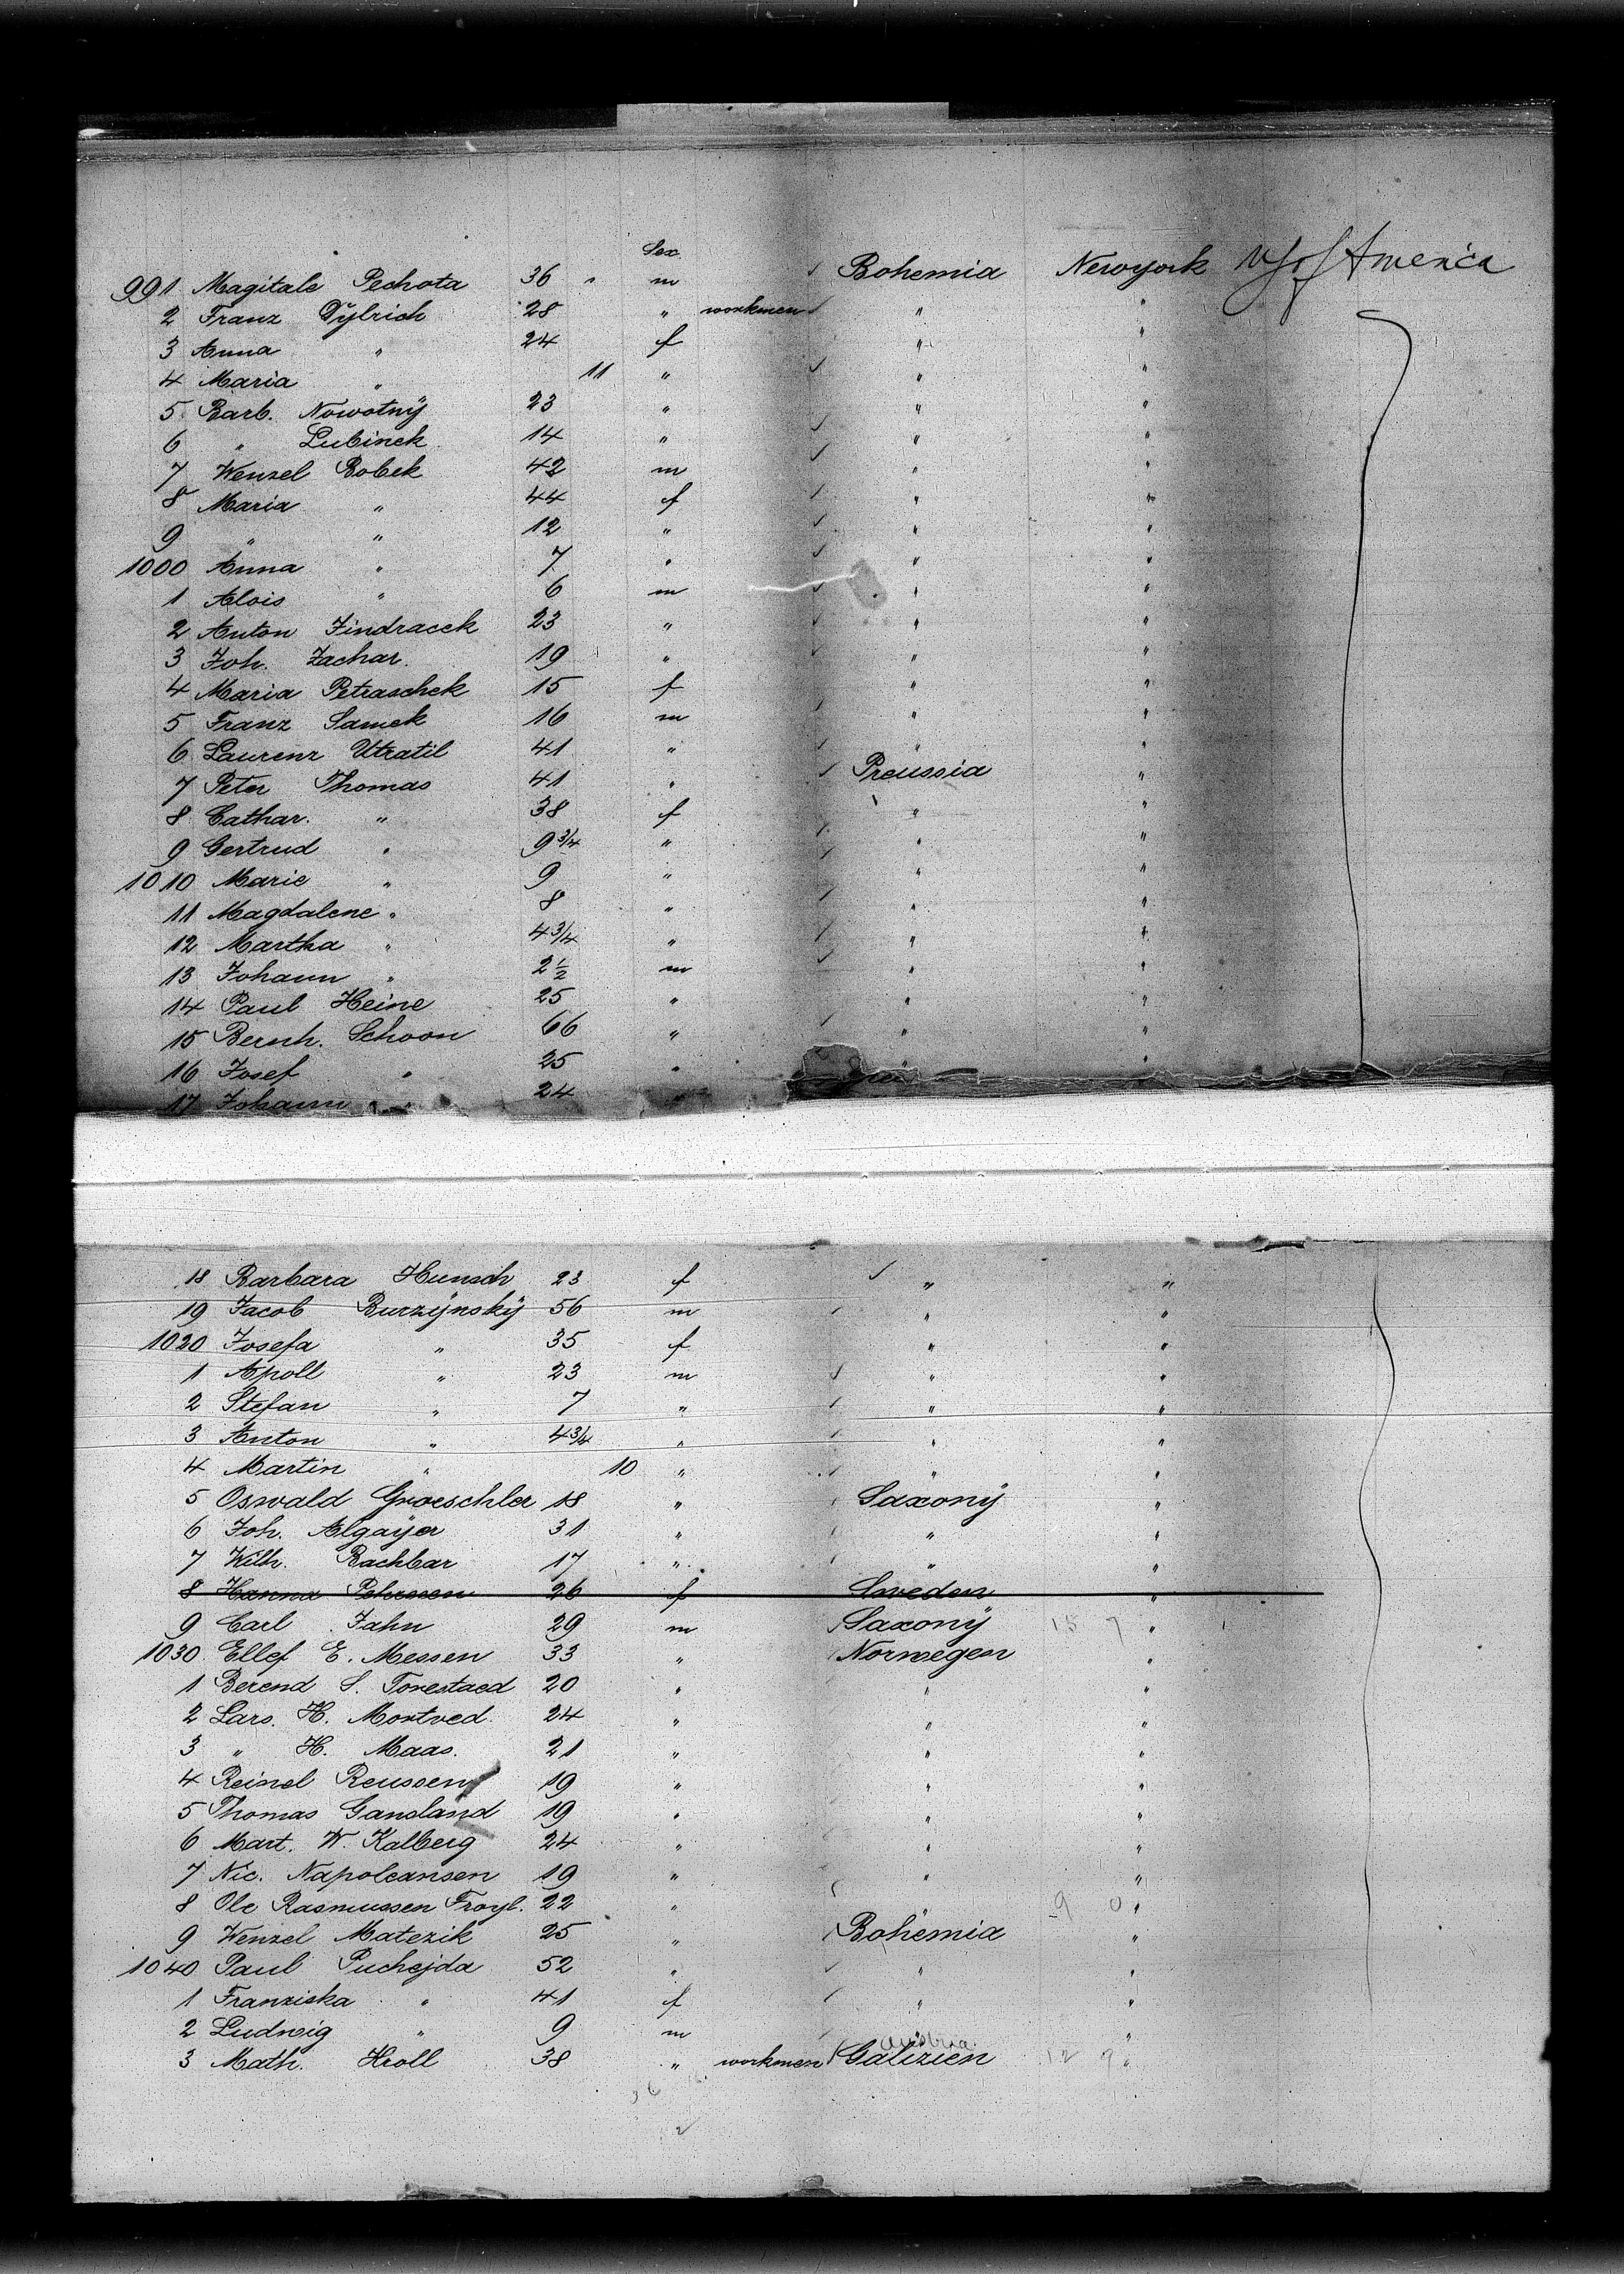 Sex
991 Magitale Pechota 36 " m Bohemia Newyork US of America
2 Franz Dÿlrich 28 " workmen " "
3 Anna " 24 f " "
4 Maria " 11 " " "
5 Barb. Nowotnÿ 23 " " "
6 " Lubinek 14 " " "
7 Wenzel Bobek 42 m " "
8 Maria " 44 f " "
9 " " 12 " " "
1000 Anna " 7 " " "
1 Alois " 6 m " "
2 Anton Jindracek 23 " " "
3 Joh. Zachar. 19 " " "
4 Maria Petraschek 15 f " "
5 Franz Samek 16 m " "
6 Laurenz Utratil 41 " " "
7 Peter Thomas 41 " Preussia "
8 Cathar. " 38 f " "
9 Gertrud " 9 3/4 " " "
1010 Marie " 9 " " "
11 Magdalene " 8 " " "
12 Martha " 4 3/4 " " "
13 Johann " 2 1/2 m " "
14 Paul Heine 25 " " "
15 Bernh. Schoon 66 " " "
16 Josef " 25 " " "
17 Johann " 24
18 Barbara Hunsch 23 f " "
19 Jacob Burzÿnskÿ 56 m " "
1020 Josefa " 35 f " "
1 Apoll " 23 m " "
2 Stefan " 7 " " "
3 Anton " 4 3/4 " " "
4 Martin " 10 " " "
5 Oswald Groeschler 18 " Saxonÿ "
6 Joh. Algaÿer 31 " " "
7 Wilh. Bachbar 17 " " "
8 Hanna Pehrsson 26 f Sweden "
9 Carl Jahn 29 m Saxonÿ 15 7 "
1030 Ellef E. Messen 33 " Norwegen "
1 Berend S. Tonestaed 20 " " "
2 Lars. H. Mortved 24 " " "
3 " H. Maas. 21 " " "
4 Reinel Reussen 19 " " "
5 Thomas Gansland 19 " " "
6 Mart. W. Kalberg 24 " " "
7 Nic. Napoleansen 19 " " "
8 Ole Rasmussen Froyl. 22 " 9 0 "
9 Wenzel Matezik 25 " Bohemia "
1040 Paul Puchejda 52 " " "
1 Franziska " 41 f " "
2 Ludwig " 9 m "
Austria
3 Math. Hroll 38 " workmen Galizien 12 9 "